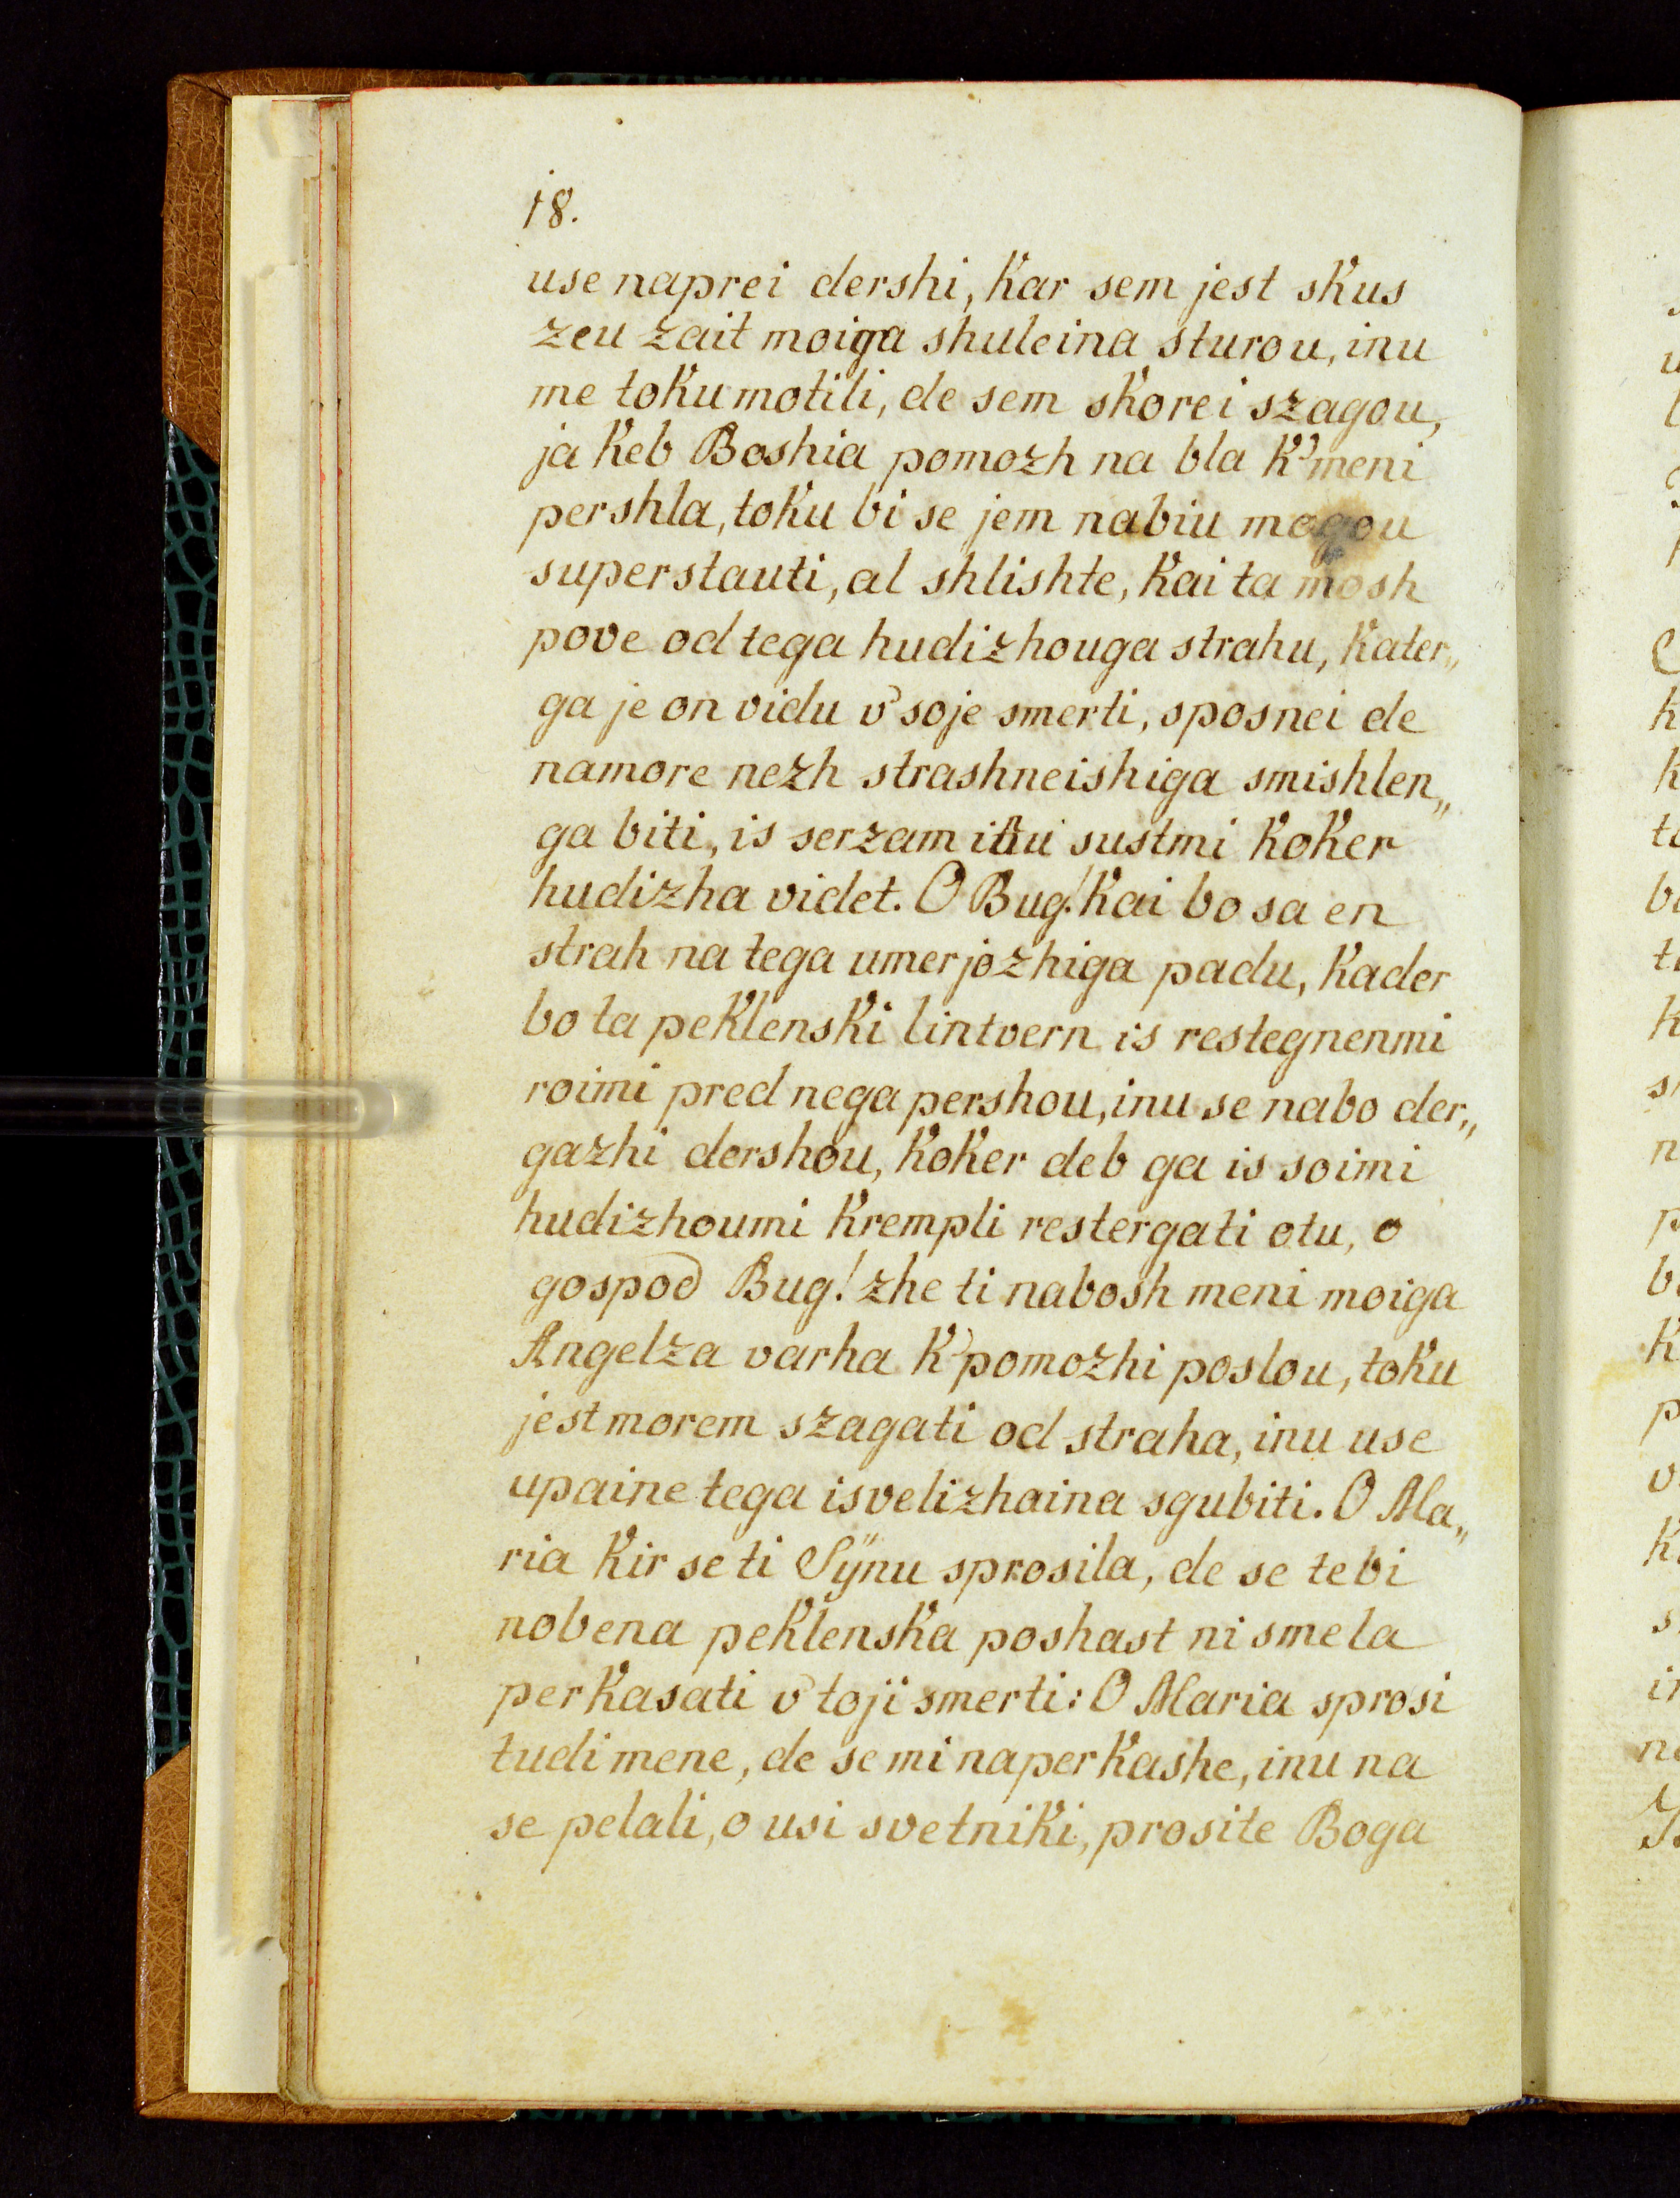 18.
use naprei dershi, kar sem jest skus
zeu zait moiga shuleina sturou, inu
me toku motili, de sem skorei szagou,
ja keb Boshia pomozh na bla k'meni
pershla, toku bi se jem nabiu mogou
superstauti, al shlishte, kai ta mosh
pove od tega hudizhouga strahu, kater„
ga je on vidu v'soje smerti, sposnei de
namore nezh strashneishiga smishlen„
ga biti, is serzam inu sustmi koker
hudizha videt. O Bug! kai bo sa en
strah na tega umerjozhiga padu, kader
bo ta peklenski lintvern is restegnenmi
roimi pred nega pershou, inu se nabo der„
gazhi dershou, koker deb ga is soimi
hudizhoumi krempli restergati otu, o
gospod Bug! zhe ti nabosh meni moiga
Angelza varha k'pomozhi poslou, toku
jest morem szagati od straha, inu use
upaine tega isvelizhaina sgubiti. O Ma„
ria kir se ti Sÿnu sprosila, de se tebi
nobena peklenska poshast ni smela
perkasati v'toji smerti: O Maria sprosi
tudi mene, de se mi naperkashe, inu na
se pelali, o usi svetniki, prosite Boga